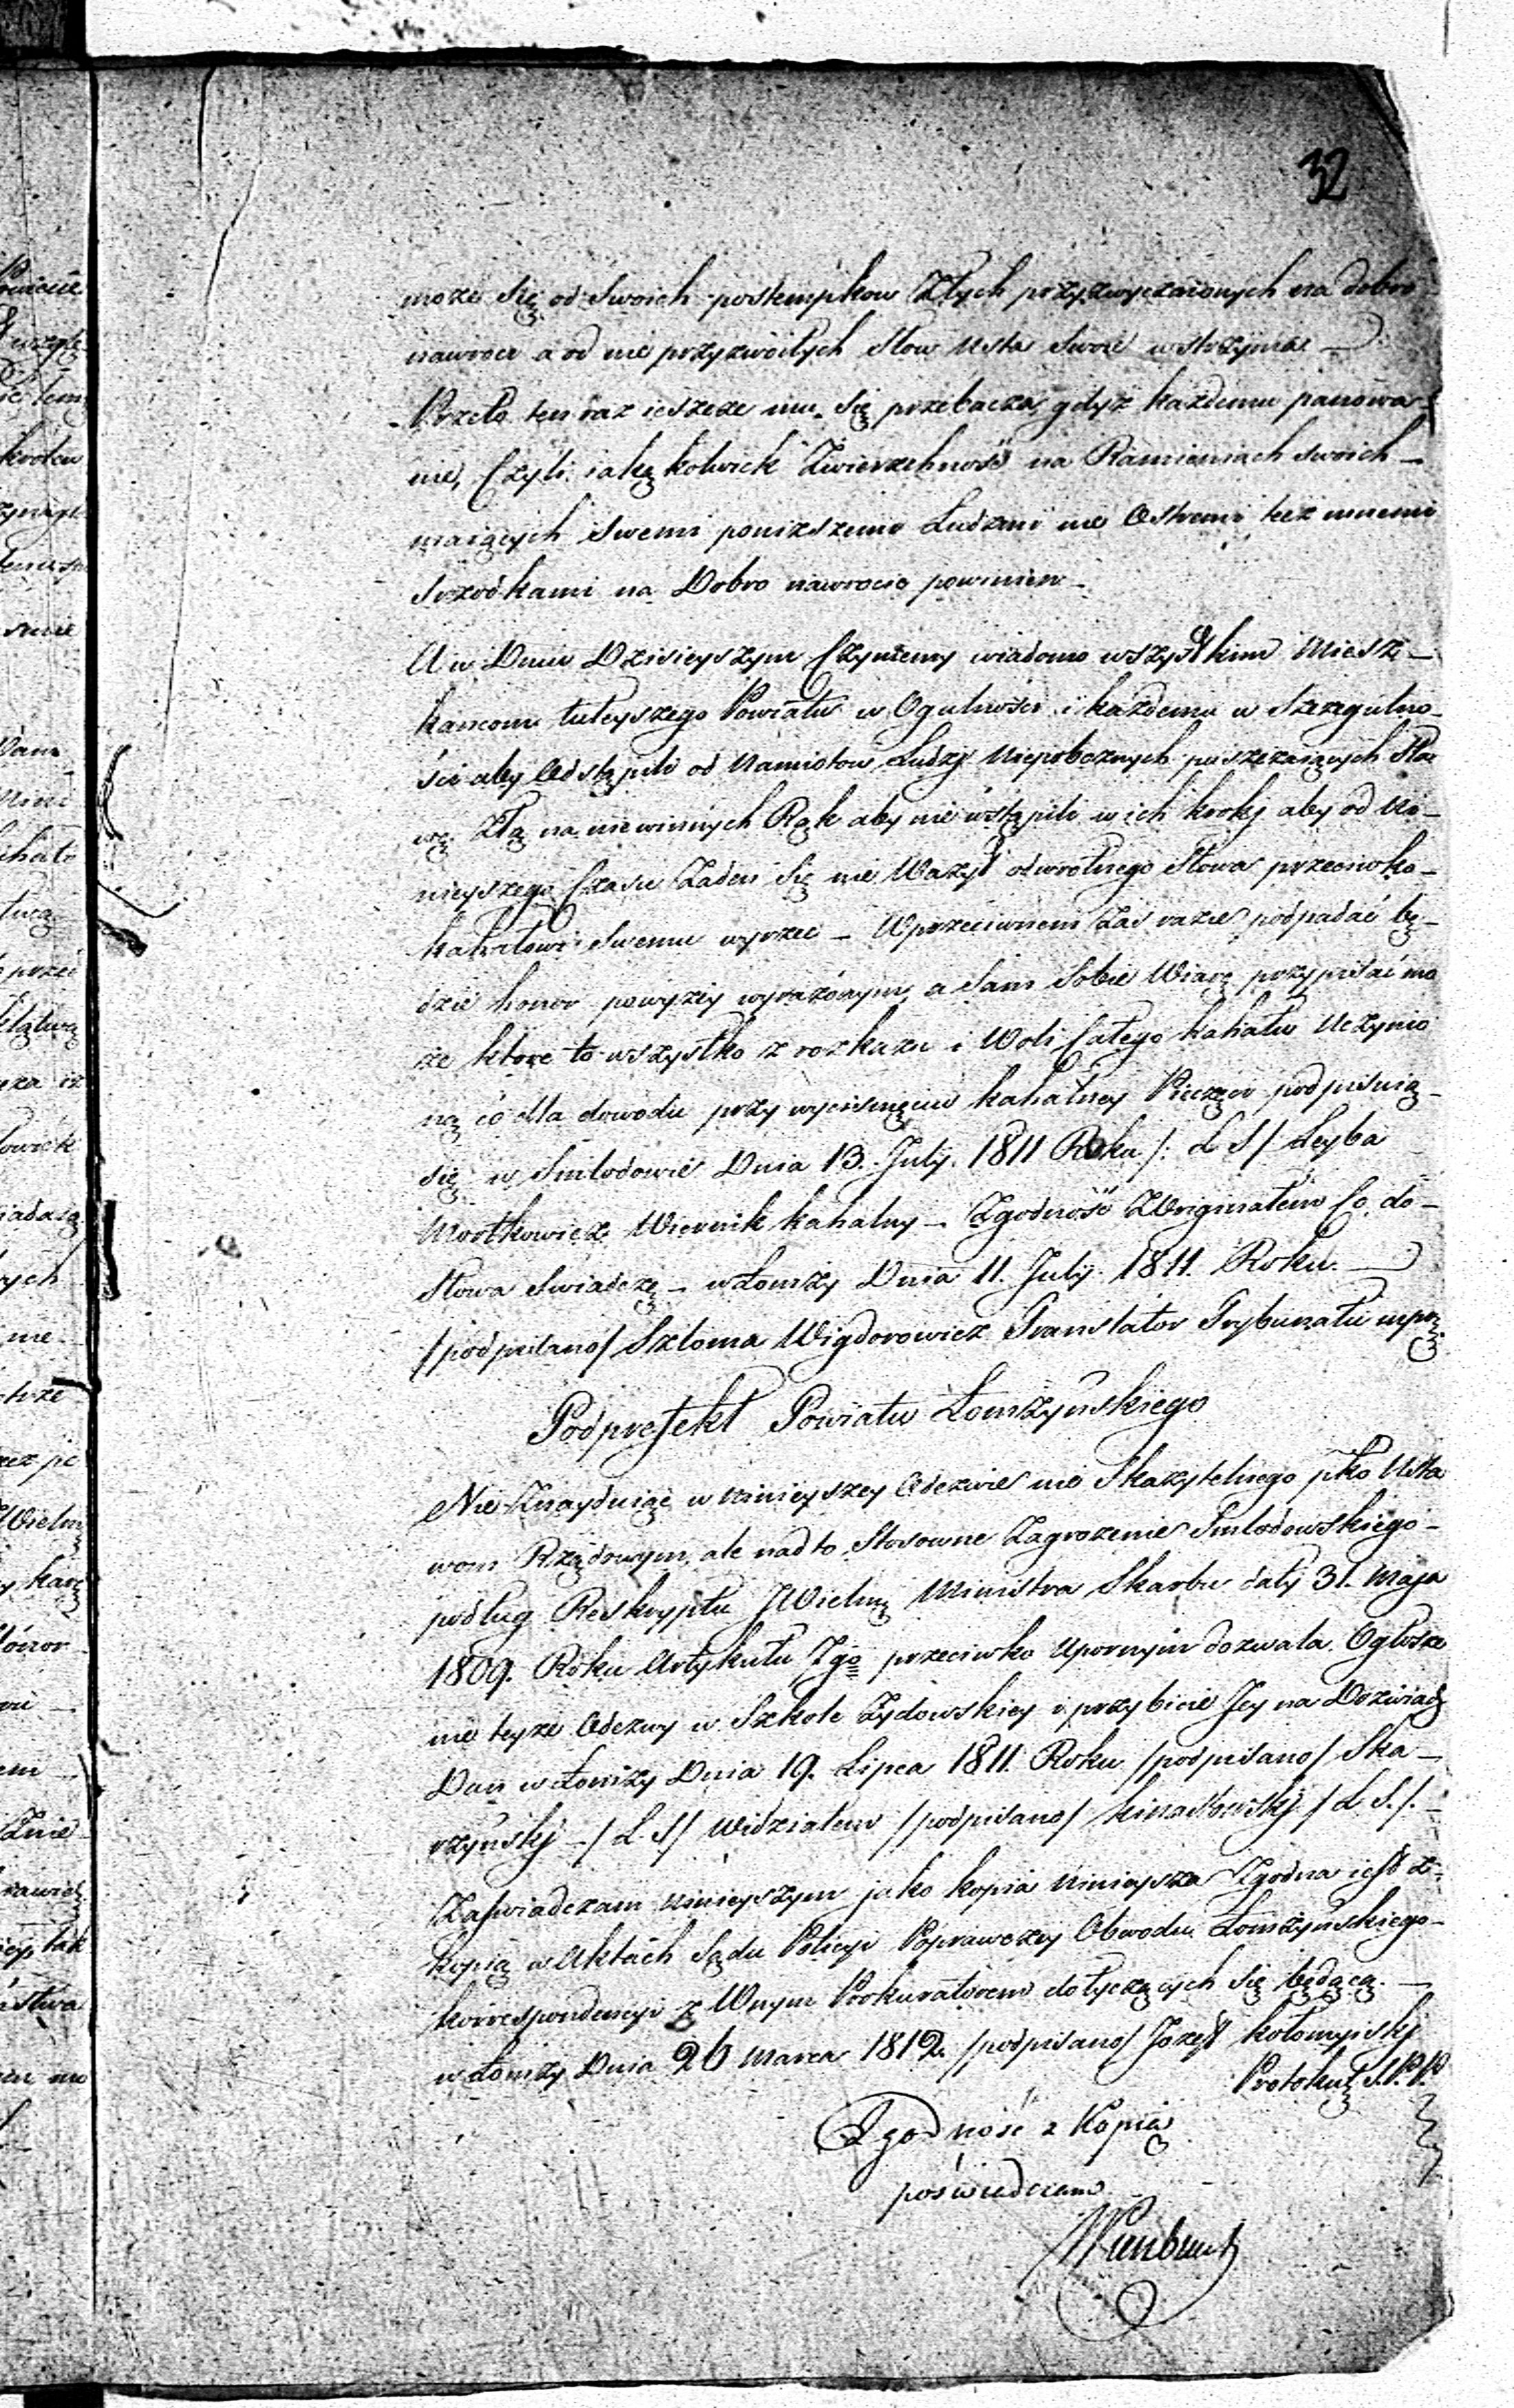 32
może się od swoich postempkow Złych przyzwyczaionych na dobro
nawroci a od nie przyzwoitych Słow Usta Swoie wstrzyma —
Przeto ten raz ieszcze mu się przebacza, gdyż każdemu panowa
nie, Czyli iaką kolwiek Zwierzchność na Ramieniach swoich —
maiących swemi poniższemi Ludzmi nie Ostremi też innemi
srzodkami na Dobro nawrocic powinien —
A w Dniu Dzisieyszym Czyniemy wiadomo wszystkim Miesz —
kancom tuteyszego Powiatu w Ogulności i każdemu w szczegulno —
ści aby Odstąpili od Namiotow Ludzi Niepobożnych puszczaiących Sła
wę Złą na niewinnych Rąk aby nie wstąpili w ich kroky aby od Ni —
nieyszego Czasu Żaden się nie Ważył odwrotnego Słowa przeciwko —
kahałowi Swemu wyrzec — W przeciwnem Zaś razie podpadać bę —
dzie honor powyżey wyrażonym, a Sam Sobie Wiarę przypisać mo
że ktore to wszystko z rozkazu i Woli Całego kahału Uczynio
ną co dla dowodu przy wycisnięciu kahalney Pieczęci podpisuią —
się w Sniadowie Dnia 13. July. 1811 Roku /: L S / Leyba
Mortkowicz Wiernik kahalny — Zgodność Z Originałem Co do —
Słowa Swiadczę — w Łomży Dnia 11. July 1811. Roku. —
/podpisano/ Szloma Wigdorowicz Translator Trybunału mprą
Podprefekt Powiatu Łomżyńskiego
Nie Znayduiąc w ninieyszey Odezwie nic Skazytelnego pko Usta
wom Rządowym, ale nadto Stosowne Zagrożenie Sniadowskiego —
podług Reskryptu JWielmo Ministra Skarbu daty 31. Maja
1809. Roku Artykułu 7go przeciwko Upornym dozwala Ogłosze
nie teyże Odezwy w Szkole Żydowskiey i przybicie Jey na Drzwiach
Dan w Łomży Dnia 19. Lipca 1811. Roku /podpisano/ Ska —
rzyński — / L. S / Widziałem /podpisano/ kinastowski / L. S. /. —
Zaświadczam ninieyszym jako kopia Ninieysza Zgodna iest z
kopią w Aktach Sądu Policyi Poprawczey Obwodu Łomżyńskiego —
korrespondencyi z Wnym Prokuratorem dotyczących się będącą. —
w Łomży Dnia 26 Marca 1812. /podpisano/ Jozef kołomyiski
Protokuł. S. P. P.
Zgodność z Kopią
poświadczam